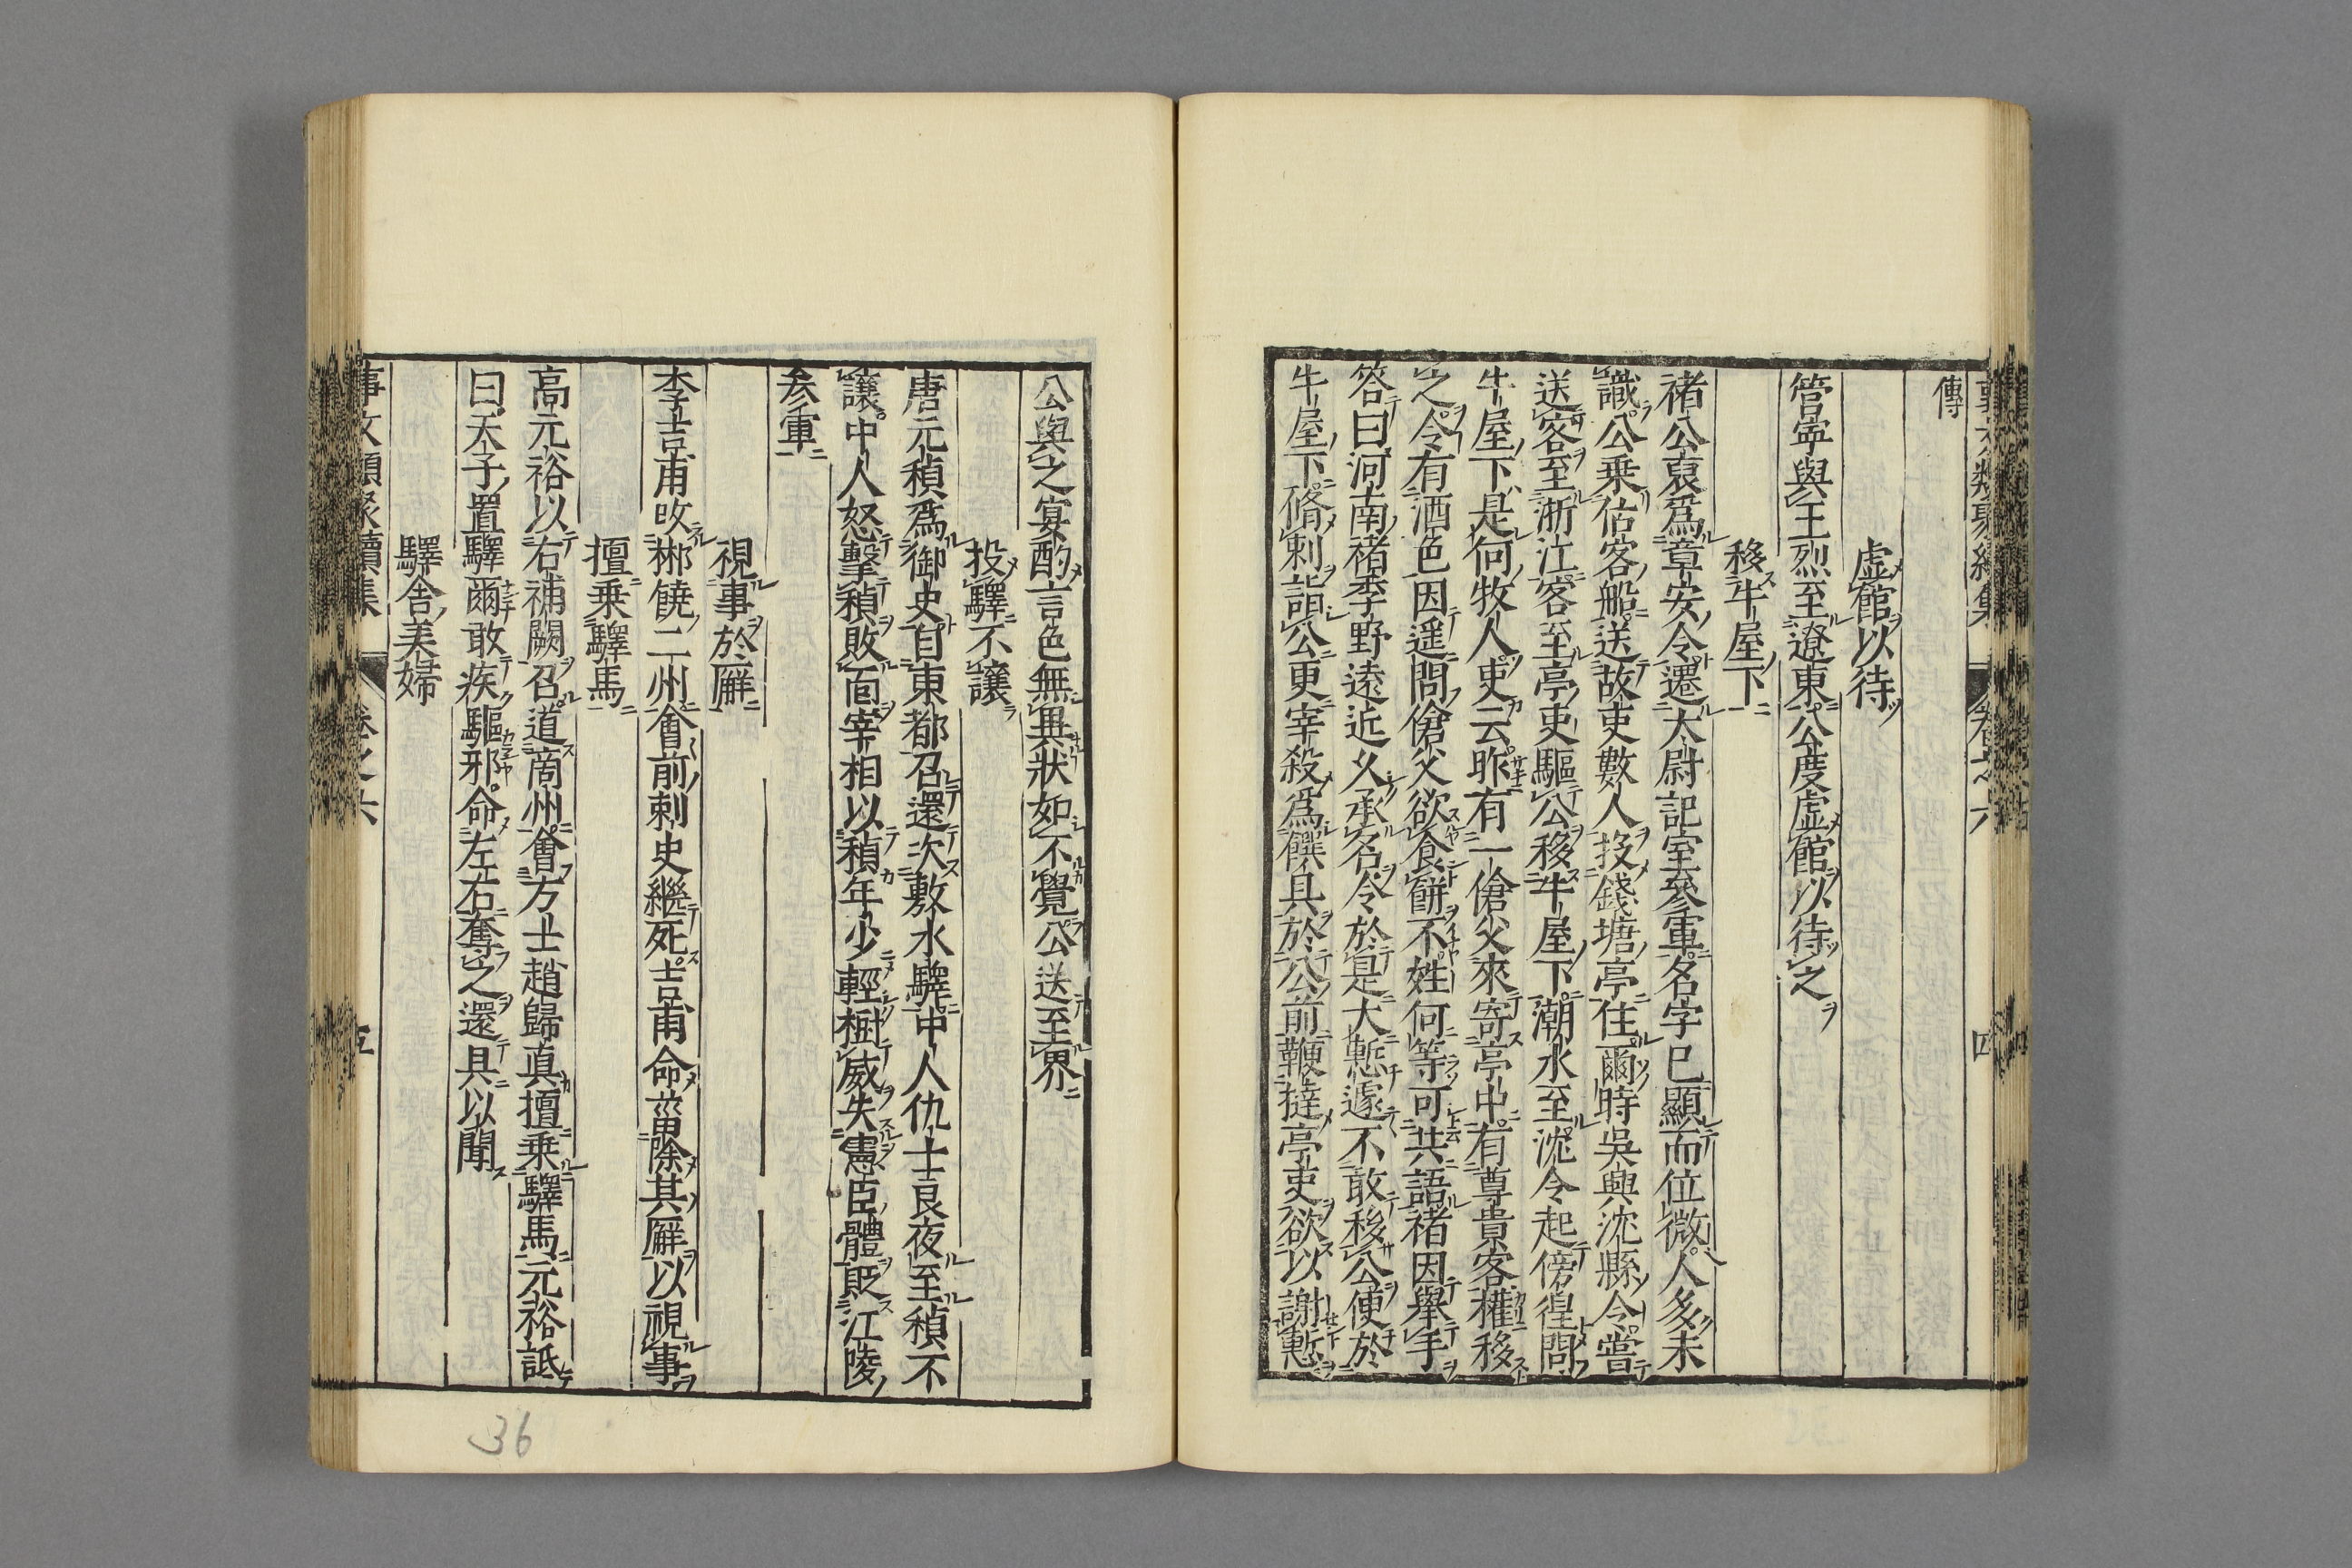 傳
虚館以待
管寧與王烈至遼東公度虚館以待之
移牛屋下
褚公裒爲章安令遷太尉記室參軍名字已顯而位微人多未
識公乗估客船送故吏數人投錢塘亭住爾時吳興沈縣令當
送客至浙江客至亭吏驅公移牛屋下潮水至沈令起傍徨問
牛屋下是何牧人吏云昨有一傖父來寄亭中有尊貴客權移
之令有酒色因遥問傖父欲食餅不姓何等可共語褚因舉手
答曰河南褚季野遠近久承名令於是大慙遽不敢移公便於
牛屋下脩刺詣公更宰殺爲饌具於公前鞭撻亭吏欲以謝慙
公與之宴酌言色無異狀如不覺公送至界
投驛不讓
唐元稹爲御史自東都召還次敷水驛中人仇士良夜至稹不
讓中人怒擊稹敗面宰相以稹年少輕樹威失憲臣體貶江陵
参軍
視事於廨
李吉甫改郴饒二州會前刺史繼死吉甫命菑除其廨以視事
擅乗驛馬
高元裕以右補闕召道商州會方士趙歸真擅乗驛馬元裕詆
曰天子置驛爾敢疾驅邪命左右奪之還具以聞
驛舎美婦
事文類聚續集 卷之六 五
36